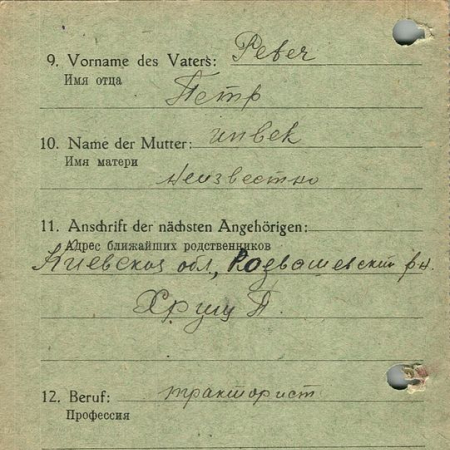 9. Vorname des Vaters: Peter
Имя отца
Петр
10. Name der Mutter:
Имя матери
неизвестно
11. Anschrift der nächsten Angehörigen:
Адрес ближайших родственников
Киевская обл,
Хрущ П.
12. Beruf: тракторист
Профессия